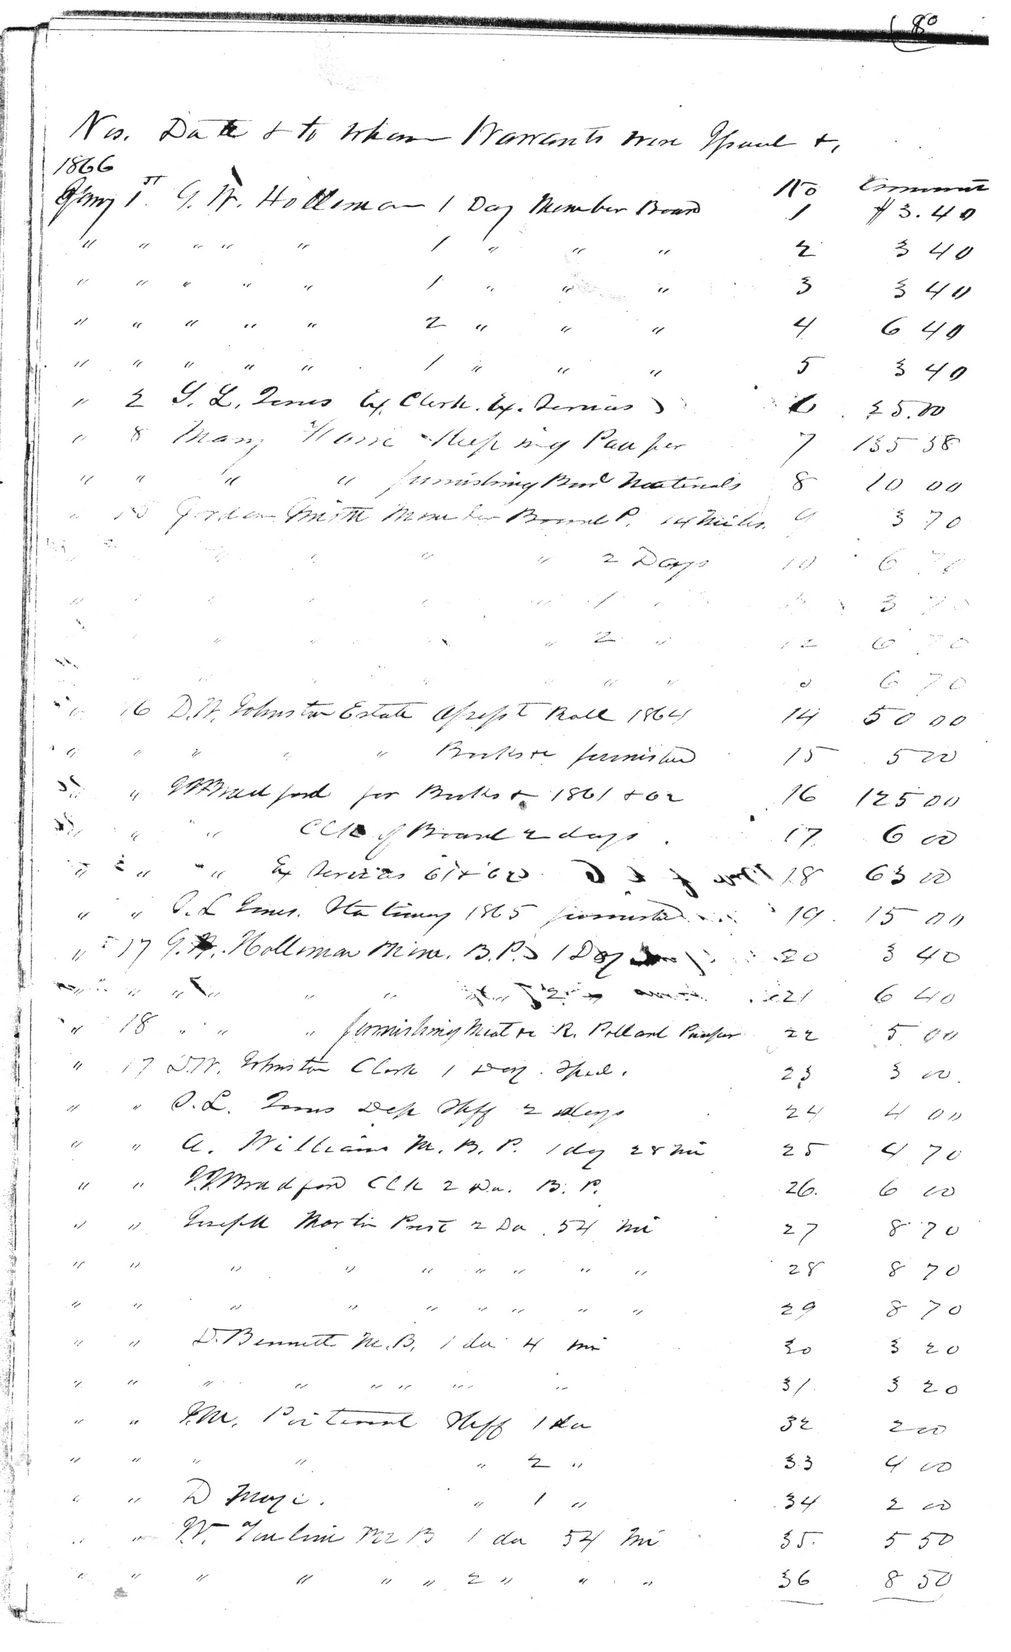 80
Nos. Date & to whom Warrants were Issued &,
1866
No Amount
Jany 1st G. W. Holloman 1 Day Member Board 1 $3.40
" " " " " 1 " " " 2 3 40
" " " " " 1 " " " 3 3 40
" " " " " 2 " " " 4 6 40
" " " " " 1 " " " 5 3 40
" 2 L. Ex. Clerk. Ex. Services 6 25.00
" 8 Mary Keeping Pauper 7 135 38
" " " " furnishing Burl Materials 8 10 00
" Smith Member Board P. 14 Miles. 9 3 70
" " " 2 Days 10 6 70
" " " 1 " 3 70
" " " 2 " 12 6 70
" " " " " 6 70
" 16 D. W. Johnston Estate Assesst Roll 1864 14 50 00
" " " " " Books &c furnished 15 5 00
" " Bradford for Books & 1861 & 62 16 125 00
" " " " Clk of Board 2 days 17. 6 00
" " " " Ex Services 61 & 62 18 63 00
" " L Stationery 1865 furnished 19. 15 00
" 17 G. W. Holloman Mem. B. P. 1 Day 20 3 40
" " " " " 2 21 6 40
" 18 " " " furnishing Meat &c R. Pollard Pauper 22 5 00
" 17 D. W. Johnston Clerk 1 Day. Spcl. 23 3 00.
" " L. Dep Shff 2 days 24 4 00
" " A. Williams M. B. P. 1 dy 28 mi 25 4 70
" " Bradford Clk 2 Da. B. P. 26. 6 00
" " Joseph Martin Prest 2 Da. 54 mi 27 8 70
" " " " " " " " " 28 8 70
" " " " " " " " " 29 8 70
" " D. Bennett M. B. 1 da 4 mi 30 3 20
" " " " " " " " 31 3 20
" " M. Shff 1 da 32 2 00
" " " " " 2 " 33 4 00
" " D " 1 " 34 2 00
" " W. M B 1 da 54 mi 35. 5 50
" " " " " " 2 " " " 36 8 50